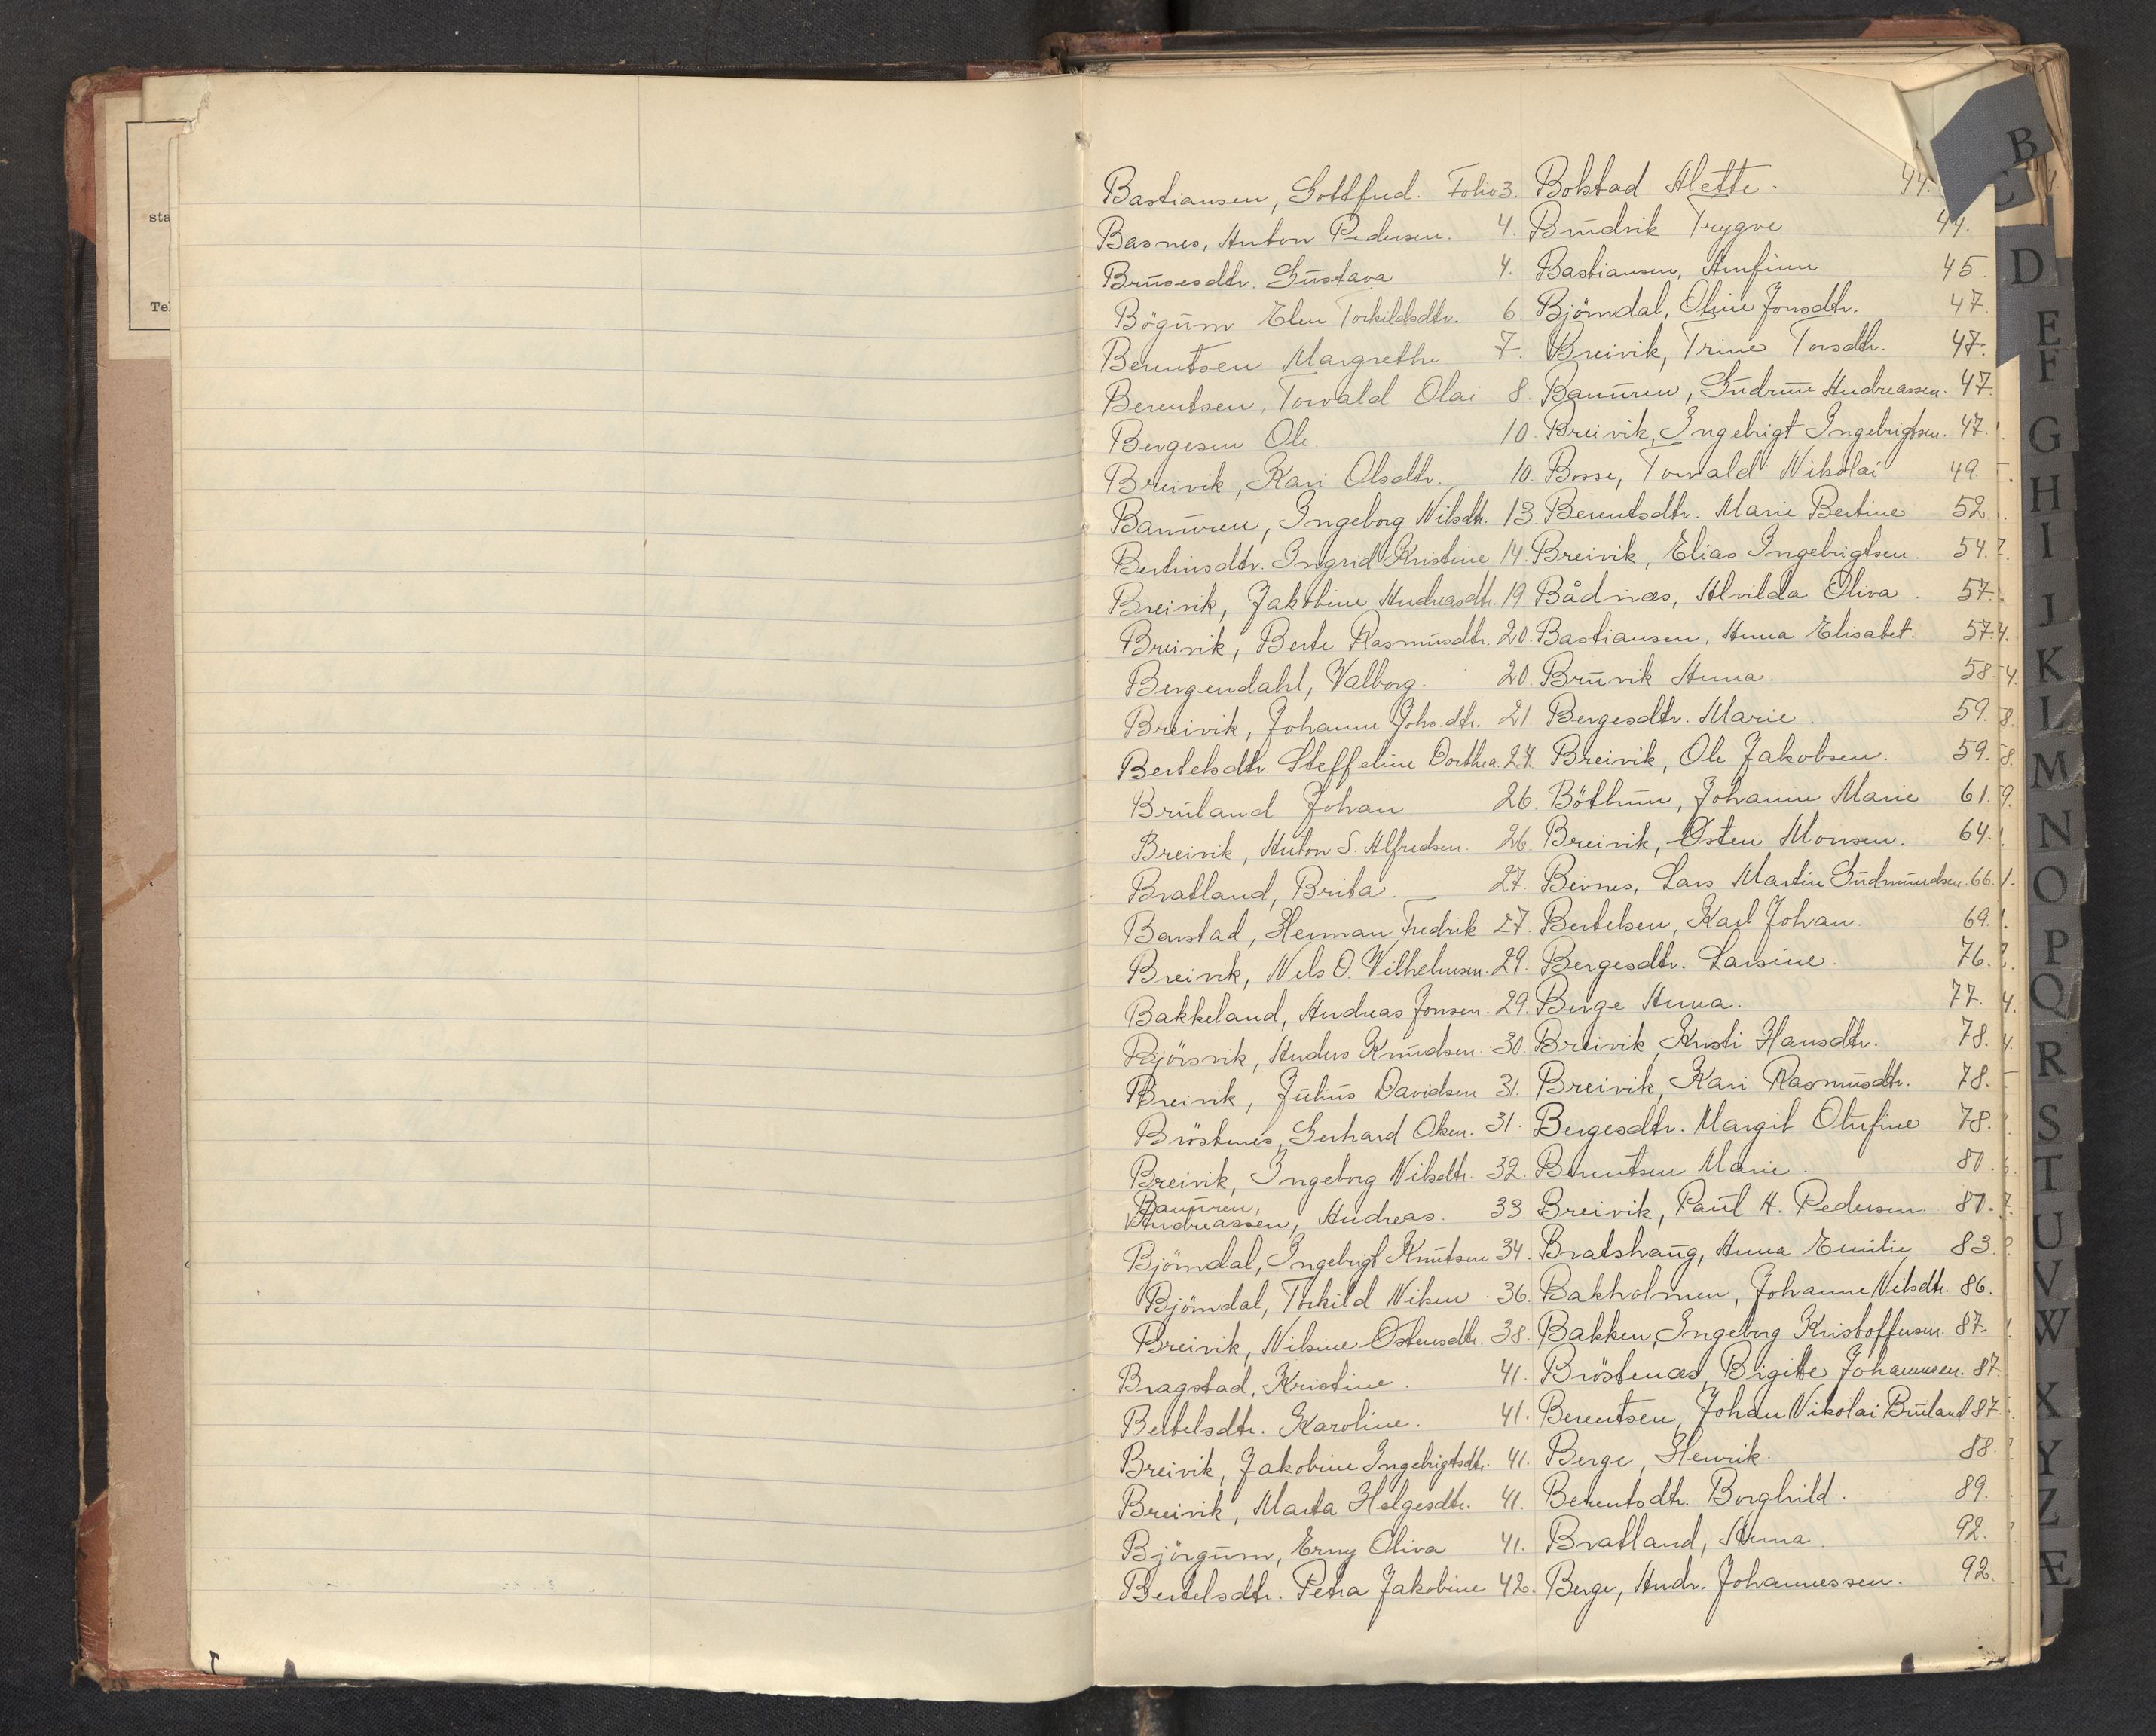 Bastiansen, Gottfred. Folio 3.
Basnes, Anton Pedersen. 4.
Brusesdtr. Gustava 4.
Bögum Elen Torkildsdtr. 6.
Berentsen Margrethe 7.
Berentsen, Torvald Olai 8.
Bergesen Ole. 10.
Breivik, Kari Olsdtr. 10.
Bauuren, Ingeborg Nilsdtr. 13.
Bertinsdtr. Ingrid Kristine 14.
Breivik, Jakobine Andreasdtr. 19
Breivik, Berte Rasmusdtr. 20.
Bergendahl, Valborg. 20.
Breivik, Johanne Johs.dtr. 21.
Bertelsdtr. Steffeline Dorthea. 24.
Bruland Johan. 26.
Breivik, Anton S. Alfredsen. 26.
Bratland, Brita. 27.
Barstad, Herman Fredrik 27.
Breivik, Nils O. Vilhelmsen. 29.
Bakkeland, Andreas Jonsen. 29.
Björsvik, Anders Knudsen. 30.
Breivik, Julius Davidsen 31.
Bröstenes, Gerhard Olsen. 31.
Breivik, Ingeborg Nilsdtr. 32.
Bauuren,
Andreassen, Andreas. 33.
Björndal, Ingebrigt Knutsen 34.
Björndal, Torkild Nilsen. 36.
Breivik, Nilsine Ostensdtr. 38.
Bragstad, Kristine. 41.
Bertelsdtr. Karoline. 41.
Breivik, Jakobine Ingebrigtsdtr. 41.
Breivik, Marta Helgesdtr. 41.
Björgum, Erny Oliva 41.
Bertelsdtr. Petra Jakobine 42.
Bolstad Alette. 44.
Brudvik Trygve 44.
Bastiansen, Arnfinn 45.
Björndal, Oline Jonsdtr. 47.
Breivik, Trine Torsdtr. 47.
Bauuren, Gudrun Andreassen. 47.
Breivik, Ingebrigt Ingebrigtsen. 47.
Bosse, Torvald Nikolai 49.
Berentsdtr. Marie Bertine 52.
Breivik, Elias Ingebrigtsen. 54.
Bådnæs, Alvilda Oliva. 57.
Bastiansen, Anna Elisabet. 57.
Bruvik Anna. 58.
Bergesdtr. Marie. 59.
Breivik, Ole Jakobsen. 59.
Böthun, Johanne Marie 61.
Breivik, Østen Monsen. 64.
Beines, Lars Martin Gudmundsen. 66.
Bertelsen, Karl Johan. 69.
Bergesdtr. Larsine. 76.
Berge Anna. 77.
Breivik, Kristi Hansdtr. 78.
Breivik, Kari Rasmusdtr. 78.
Bergesdtr. Margit Otrfine 78.
Berentsen Marie. 80.
Breivik, Paul H. Pedersen. 81.
Bratshaug, Anna Emilie 83.
Bakholmen, Johanne Nilsdtr. 86.
Bakken, Ingeborg Kristoffersen. 87.
Bröstenæs, Brigitte Johannesen. 87.
Berentsen, Johan Nikolai Bruland 87.
Berge, Henrik. 88.
Berentsdtr. Borghild. 89.
Bratland, Anna. 92.
Berge, Andr. Johannessen. 92.
B
C
D
E
F
G
H
I
J
K
L
M
N
O
P
Q
R
S
T
U
V
W
X
Y
Z
Æ
sta
Te